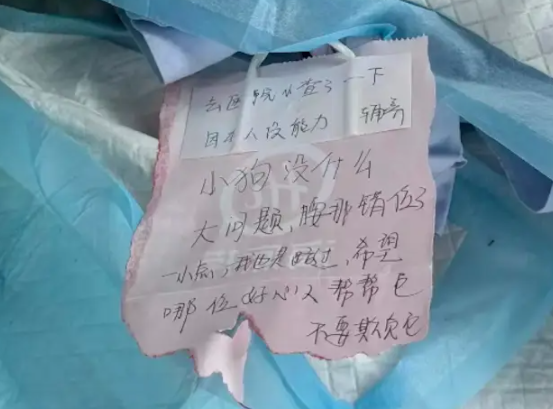 去医院检查了一下
因本人没能力
小狗没什么
大问题,腰那错位了
一小点,我也是路过,希望
哪位好心人帮帮它
不要欺负它